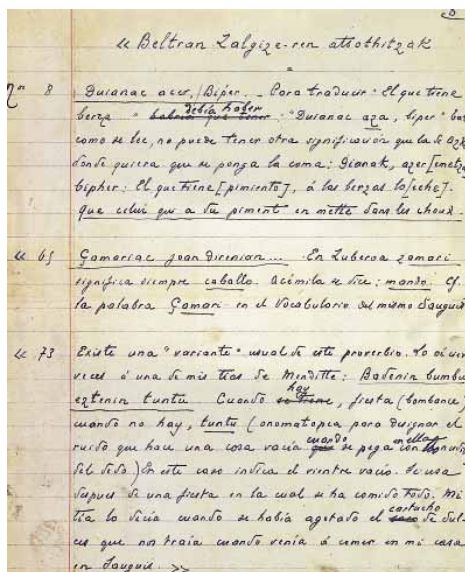 « Beltran Zalgize-ren atsothitzak
nos 8 Duianac acer, / Biper. _ Para traducir "El que tiene
berza " habria que tener debia haber "Duianac aza, biper" bas
como se lee, no puede tener otra significación que la de aza
donde quiera que se ponga la coma: Dianak, azer [emetza
bipher: El que tiene [pimiento], á las berzas lo [eche].
Que celui qui a du piment en mette dans les choux.
« 65 Çamariac joan direnian ... En Zuberoa zamari
significa siempre caballo. Acémila se dice: mando. Cf.
la palabra Çamari en el Vocabulario del mismo Sauguis
« 73 Existe una "variante" usual de este proverbio. Lo oí
veces á una de mis tías de Menditte: Badenin bumbu
eztenin tuntu Cuando se tiene hay, fiesta (bombance)
cuando no hay, tuntu (onomatopea para designar el
ruido que hace una cosa vacía que cuando se pega con
del dedo) En este caso indica el vientre vacío. Se usa
despues de una fiesta en la cual se ha comido todo. Mi
tía lo decía cuando se había agotado el saco cartucho de dul-
ces que nos traía cuando venía á comer en mi casa
en Sauguis. >>